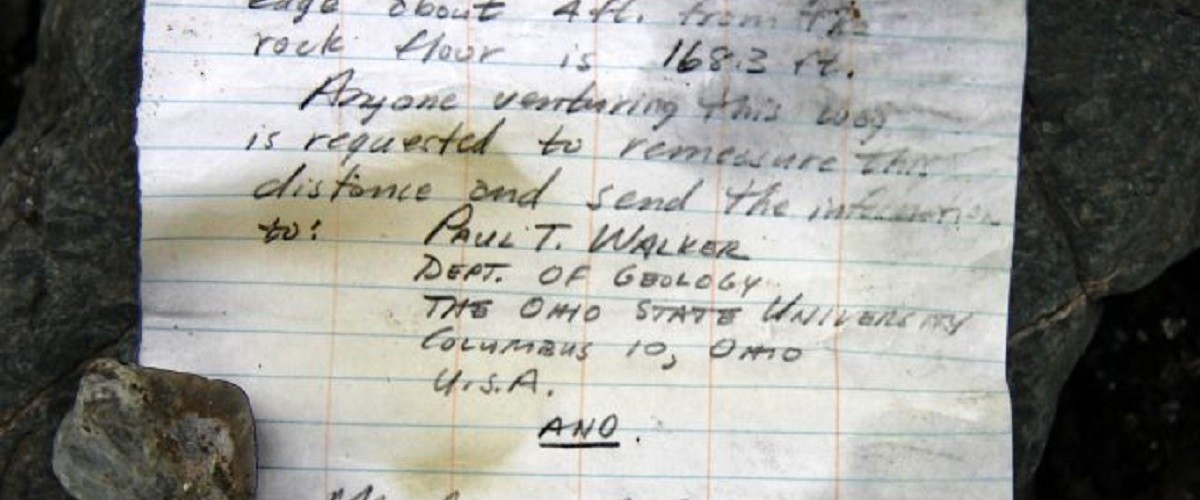 edge about 4 ft. from the
rock floor is 168.3 ft.
Anyone venturing this way
is requested to remeasure this
distance and send the information
to: PAUL T. WALKER
DEPT. OF GEOLOGY
THE OHIO STATE UNIVERSITY
COLUMBUS 10, OHIO
U.S.A.
AND.